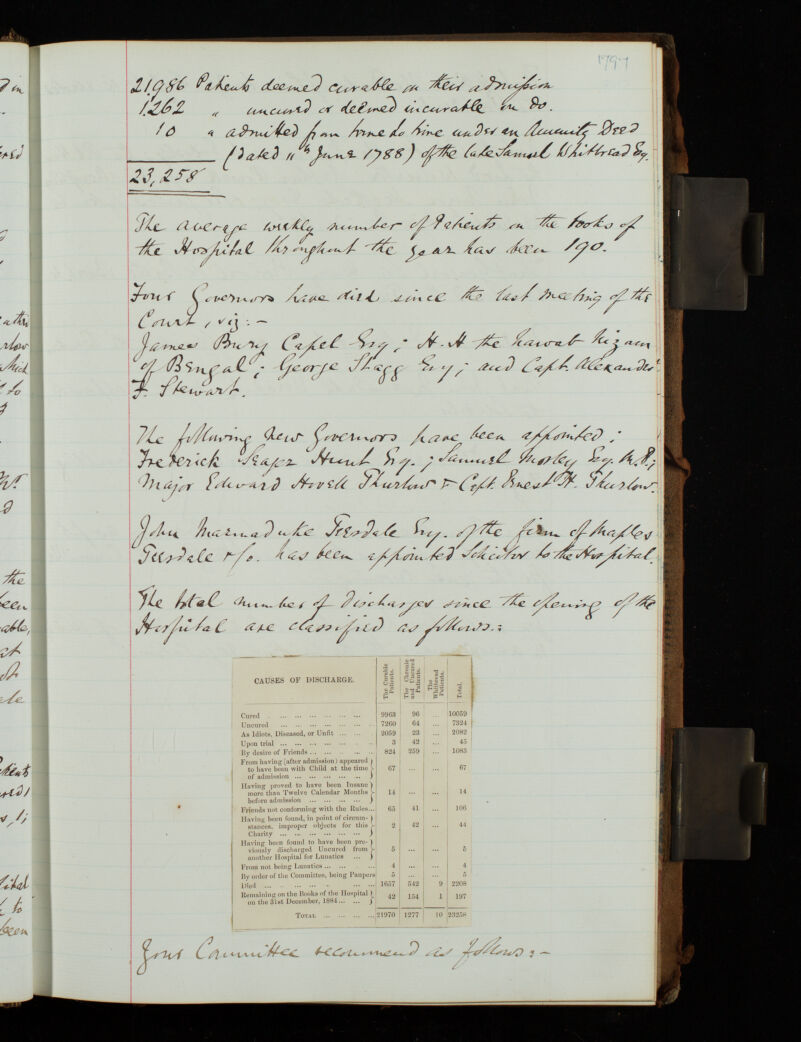 1797
21,986 Patients deemed curable on their admission
1,262 " uncured or deemed incurable on Do.
10 " admitted from time to time under an Annuity Deed
(dated 11th June 1788) of the late Samuel Whitbread Esq.
23,258
The average weekly number of Patients on the books of
the Hospital throughout the year has been 190.
Four Governors have died since the last meeting of the
Court, viz:-
James Bury Capel Esq; H.H the Nawab Nizam
of Bengal; George Stagg Esq; and Capt. Alexander
F. Stewart.
The following new Governors have been appointed;
Frederick Hunt Esq.; Samuel Morley Esq. M.P.;
Major Edward Hovell Thurlow & Capt. Ernest H. Thurlow.
John Marmaduke Teesdale Esq. of the firm of Maples
Teesdale & Co. has been appointed Solicitor to the Hospital.
The total number of Discharges since the opening of the
Hospital are classified as follows:
CAUSES OF DISCHARGE. The Curable Patients. The Chronic and Uncured Patients. The Whitbread Patients. Total.
Cured ... 9963 96 ... 10059
Uncured ... 7260 64 ... 7324
As Idiots, Diseased, or Unfit ... 2059 23 ... 2082
Upon trial ... 3 42 ... 45
By desire of Friends ... 824 259 ... 1083
From having (after admission) appeared
to have been with Child at the time 67 ... ... 67
of admission ...
Having proved to have been Insane
more than Twelve Calendar Months 14 ... ... 14
before admission ...
Friends not conforming with the Rules... 65 41 ... 106
Having been found, in point of circum-
stances, improper objects for this 2 42 ... 44
Charity ...
Having been found to have been pre-
viously discharged Uncured from 5 ... ... 5
another Hospital for Lunatics ...
From not being Lunatics ... 4 ... ... 4
By order of the Committee, being Paupers 5 ... ... 5
Died ... 1657 542 9 2208
Remaining on the Books of the Hospital
on the 31st December, 1884 ... 42 154 1 197
TOTAL ... 21970 1277 10 23258
Your Committee recommend as follows:-